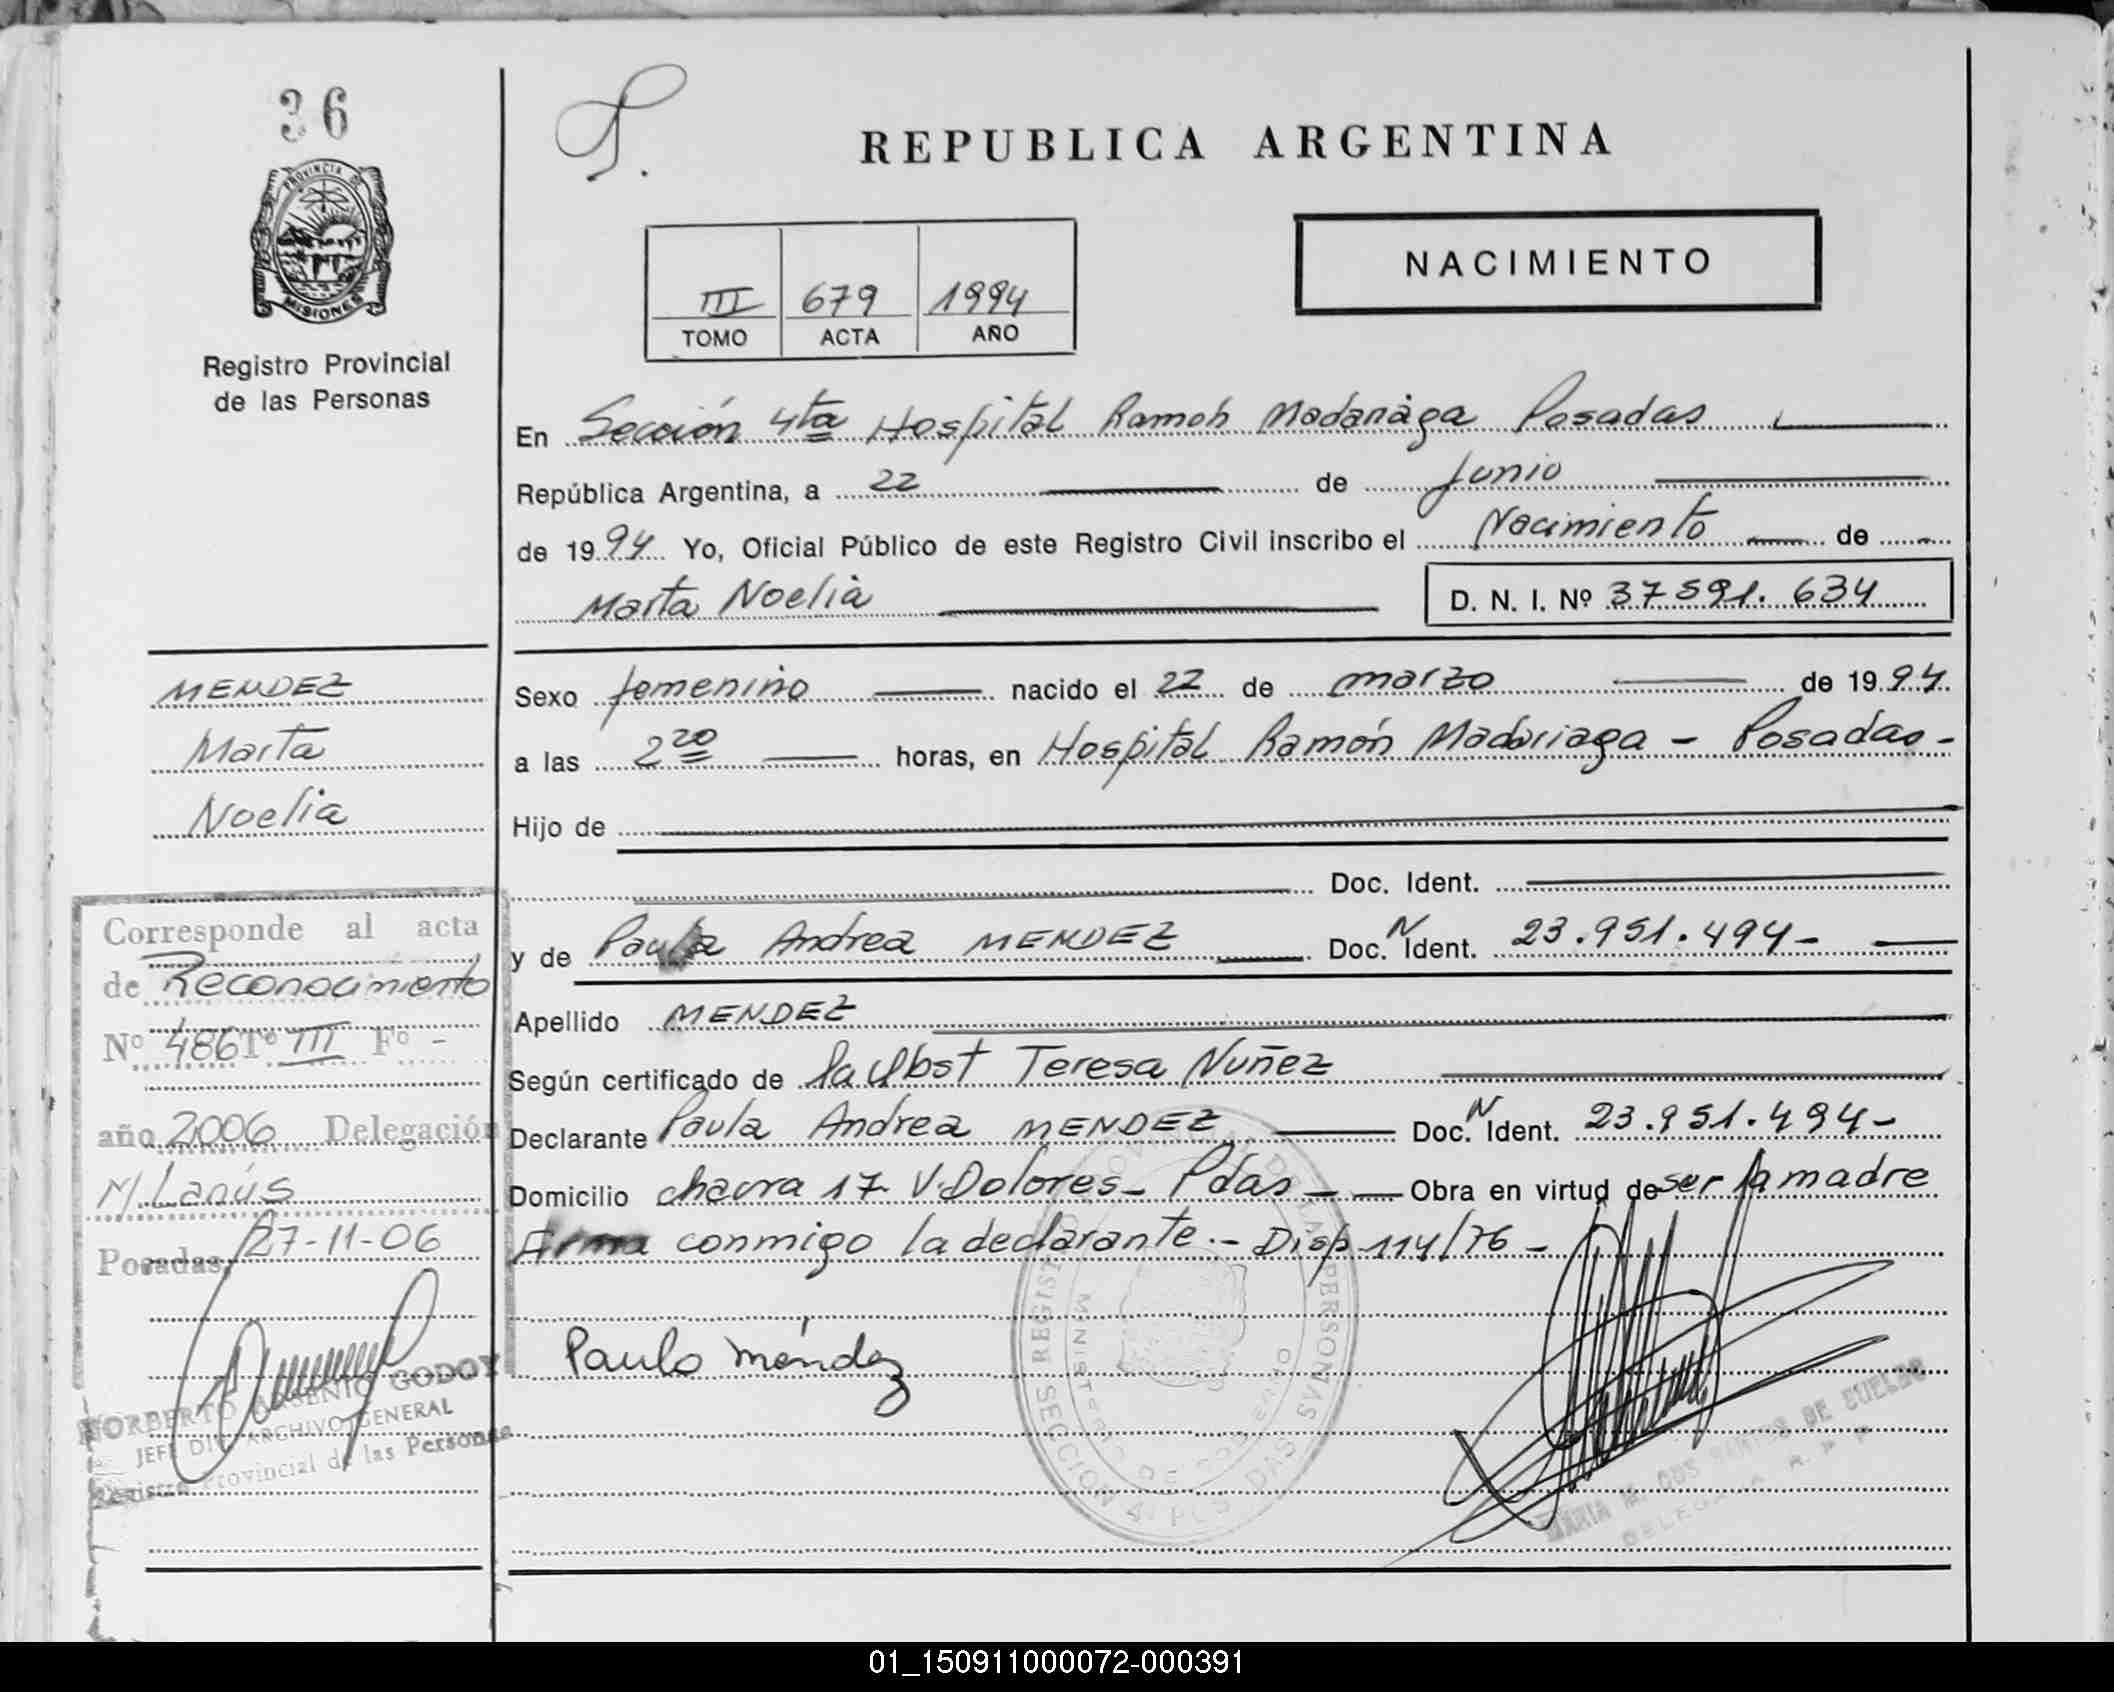 36
PROVINCIA DE
MISIONES
Registro Provincial
de las Personas
REPUBLICA ARGENTINA
NACIMIENTO
III 679 1994
TOMO ACTA AÑO
En Sección 4ta Hospital Ramón Madariaga Posadas
República Argentina, a 22 de Junio
de 1994 Yo, Oficial Público de este Registro Civil inscribo el Nacimiento de
Marta Noelia D. N. I. Nº 37 591. 634
MENDEZ
Marta
Noelia
Sexo femenino nacido el 22 de marzo de 1994.
a las 2 20 horas, en Hospital Ramón Madariaga - Posadas -
Hijo de
Doc. Ident.
y de Paula Andrea MENDEZ Doc. N Ident. 23.951.494-
Apellido MENDEZ
Según certificado de Obst Teresa Nuñez
Declarante Paula Andrea MENDEZ Doc. N Ident. 23.951.494-
Domicilio chacra 17 V. Dolores - Pdas - Obra en virtud de ser la madre
Firma conmigo la declarante.- Disp 114/76 -
Paula Méndez
Corresponde al acta
de Reconocimiento
Nº 486 Tº III Fº -
año 2006 Delegación
M. Lanús
Posadas, 27-11-06
NORBERTO ARSENIO GODOY
JEFE DIV. ARCHIVO GENERAL
Registro Provincial de las Personas
REGISTRO PROVINCIAL DE LAS PERSONAS
MINISTERIO DE GOBIERNO
SECCION 4ª POSADAS
MARIA M. DOS SANTOS DE
DELEGADA R. P. P.
01_150911000072-000391